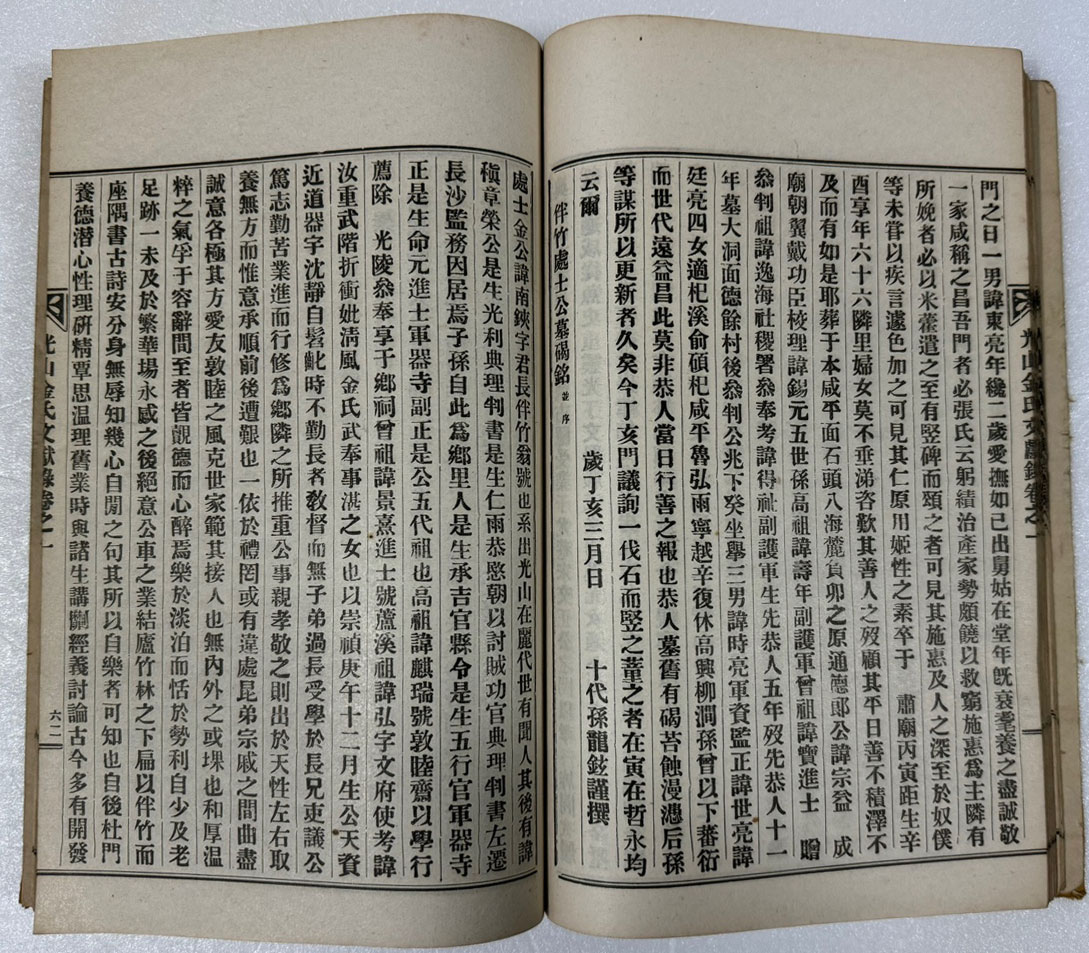 光山金氏文獻錄卷之一
門之日一男諱東亮年纔二歲愛撫如己出舅姑在堂年旣衰耄養之盡誠敬
一家咸稱之昌吾門者必張氏云躬績治產家勢頗饒以救窮施惠爲主隣有
所娩者必以米藿遣之至有竪碑而頌之者可見其施惠及人之深至於奴僕
等未嘗以疾言遽色加之可見其仁原用姬性之素卒于 肅廟丙寅距生辛
酉享年六十六隣里婦女莫不垂涕咨歎其善人之歿顧其平日善不積澤不
及而有如是耶葬于本咸平面石頭八海麓負卯之原通德郞公諱宗益 成
廟朝翼戴功臣校理諱錫元五世孫高祖諱壽年副護軍曾祖諱寶進士 贈
叅判祖諱逸海社稷署叅奉考諱得祉副護軍生先恭人五年歿先恭人十一
年墓大洞面德餘村後叅判公兆下癸坐擧三男諱時亮軍資監正諱世亮諱
廷亮四女適杞溪俞碩杞咸平魯弘雨寧越辛復休高興柳澗孫曾以下蕃衍
而世代遠益昌此莫非恭人當日行善之報也恭人墓舊有碣苔蝕漫漶后孫
等謀所以更新者久矣今丁亥門議詢一伐石而竪之董之者在寅在哲永均
云爾 歲丁亥三月日 十代孫龍鉉謹撰
伴竹處士公墓碣銘 並序
處士金公諱南鋏字君長伴竹翁號也系出光山在麗代世有聞人其後有諱
稹章榮公是生光利典理判書是生仁雨恭愍朝以討賊功官典理判書左遷
長沙監務因居焉子孫自此爲鄕里人是生承吉官縣令是生五行官軍器寺
正是生命元進士軍器寺副正是公五代祖也高祖諱麒瑞號敦睦齋以學行
薦除 光陵叅奉享于鄕祠曾祖諱景熹進士號蘆溪祖諱弘字文府使考諱
汝重武階折衝妣淸風金氏武奉事湛之女也以崇禎庚午十二月生公天資
近道器宇沈靜自髫齔時不勤長者敎督而無子弟過長受學於長兄吏議公
篤志勤苦業進而行修爲鄕隣之所推重公事親孝敬之則出於天性左右取
養無方而惟意承順前後遭艱也一依於禮罔或有違處昆弟宗戚之間曲盡
誠意各極其方愛友敦睦之風克世家範其接人也無內外之或堁也和厚溫
粹之氣孚于容辭問至者皆覿德而心醉焉樂於淡泊而恬於勢利自少及老
足跡一未及於繁華場永感之後絕意公車之業結廬竹林之下扁以伴竹而
座隅書古詩安分身無辱知幾心自閒之句其所以自樂者可知也自後杜門
養德潛心性理硏精覃思溫理舊業時與諸生講闡經義討論古今多有開發
光山金氏文獻錄卷之一
六二